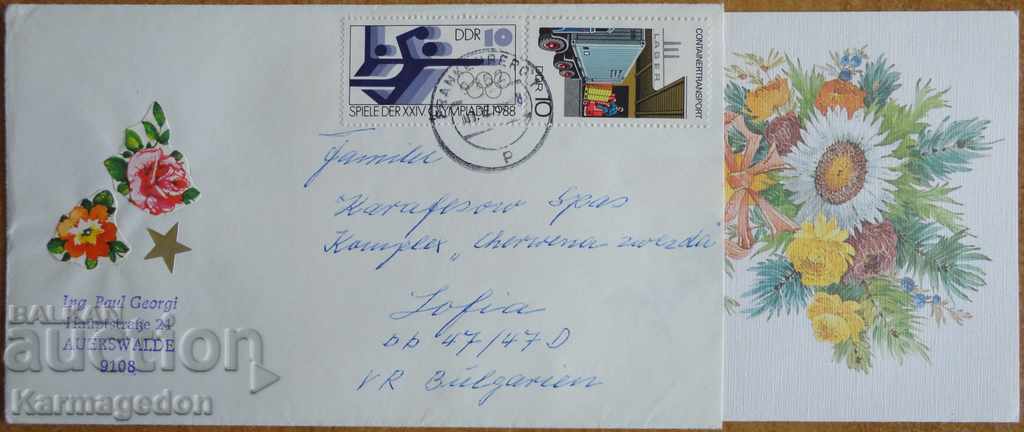 DDR 10
SPIELE DER XXIV. OLYMPIADE 1988
CONTAINERTRANSPORT
LAGER
DDR 10
Familie
Karafesow Spas
Komplex „Cherwena zwezda“
Sofia
bb 47/47 D
VR Bulgarien
Ing. Paul Georgi
Hauptstraße 24
AUERSWALDE
9108
BALKAN
auction
Karmagedon